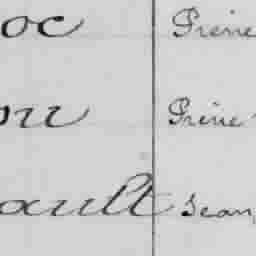 oc Pierre
ou Pierre
ault Jean